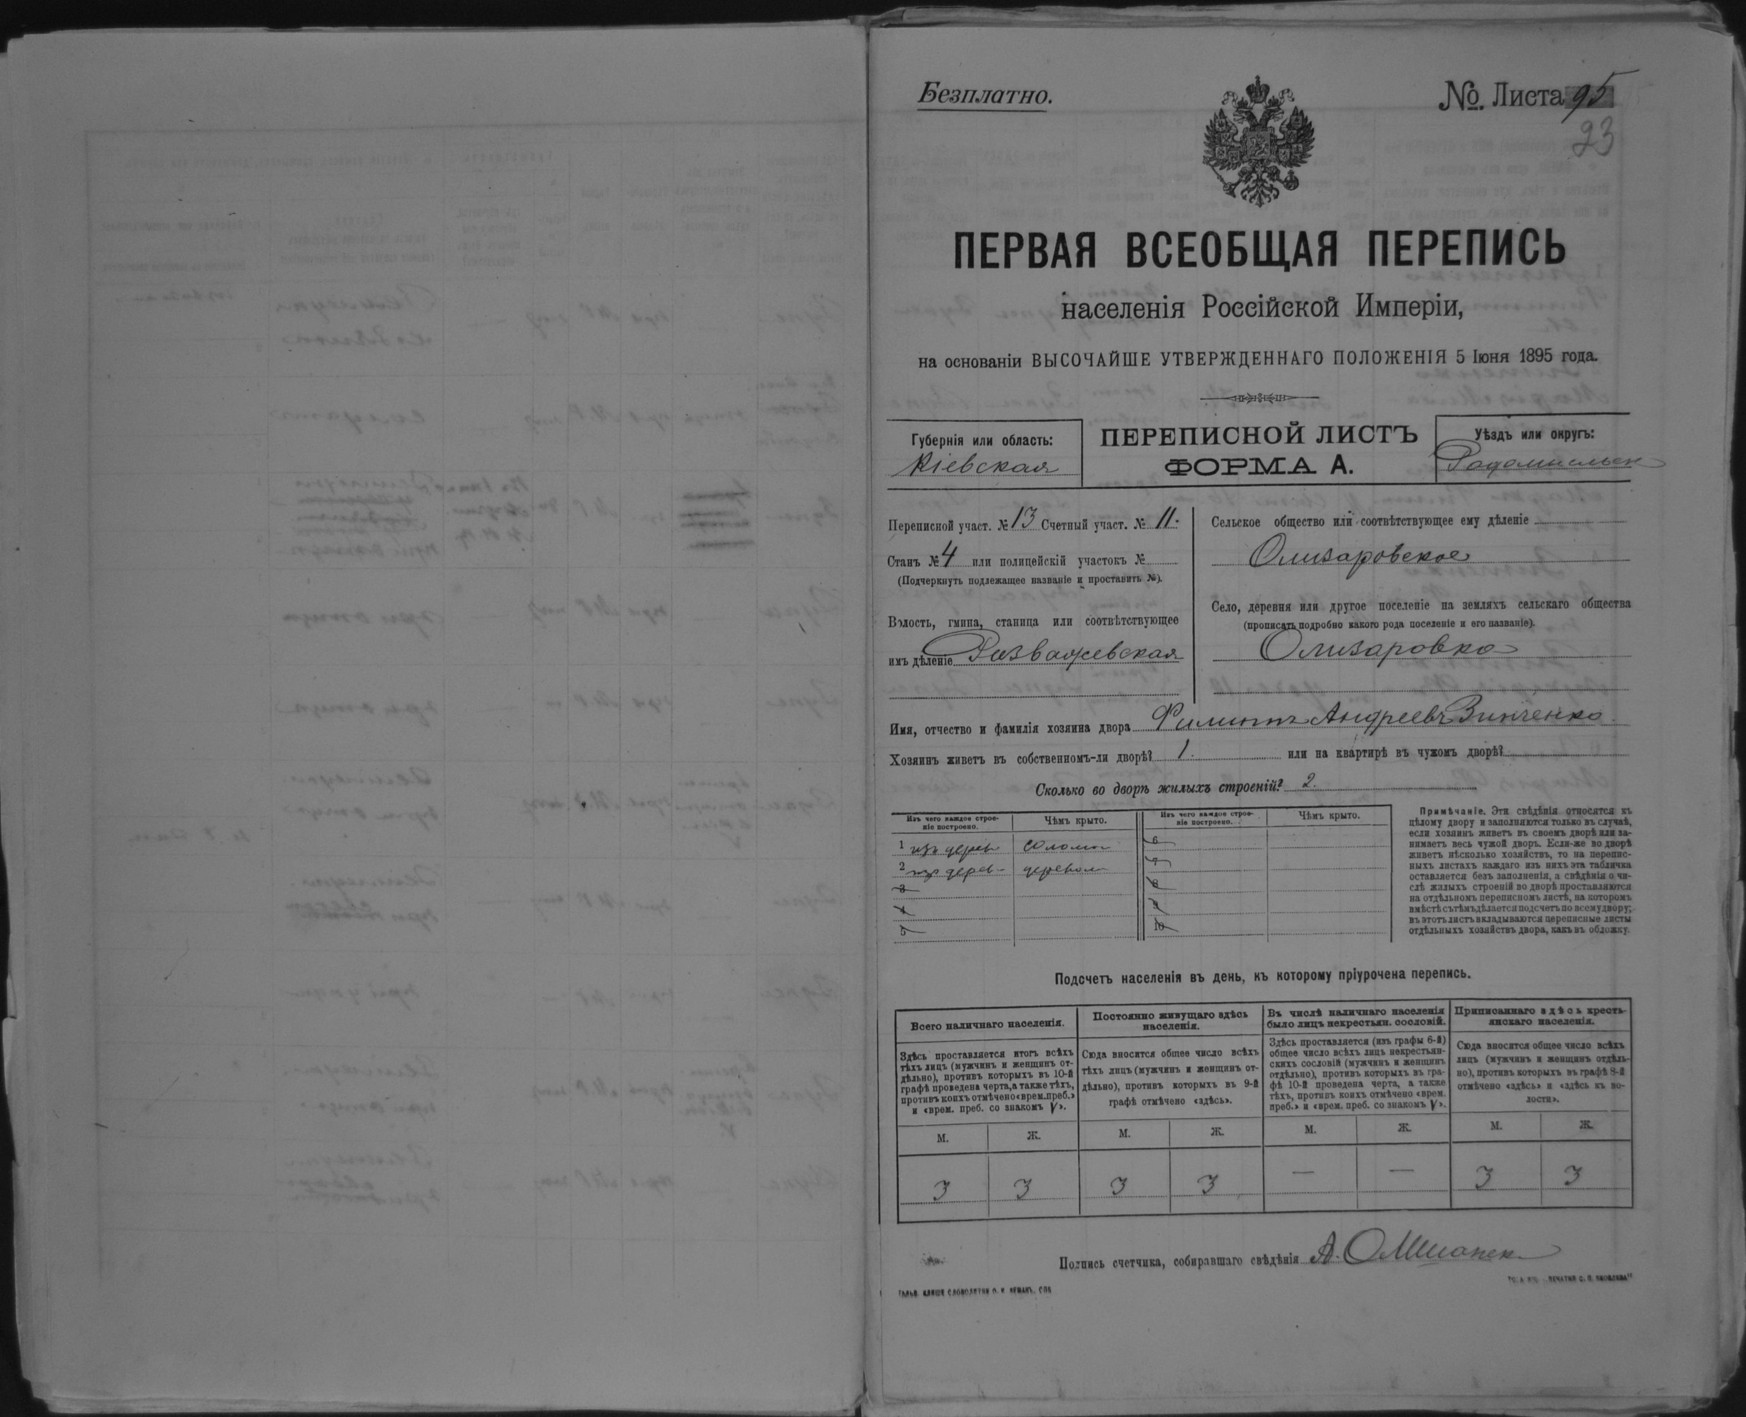 Безплатно.
№ Листа 95
23
ПЕРВАЯ ВСЕОБЩАЯ ПЕРЕПИСЬ
населенія Россійской Имперіи,
на основаніи ВЫСОЧАЙШЕ УТВЕРЖДЕННАГО ПОЛОЖЕНІЯ 5 Іюня 1895 года.
Губернія или область:
Кіевская
ПЕРЕПИСНОЙ ЛИСТЪ
ФОРМА А.
Уѣздъ или округъ:
Радомысльск
Переписной участ. № 13 Счетный участ. № 11.
Станъ № 4 или полицейскій участокъ №
(Подчеркнуть подлежащее названіе и проставить №).
Волость, гмина, станица или соотвѣтствующее
имъ дѣленіе Розважевская
Сельское общество или соотвѣтствующее ему дѣленіе
Олизаровское
Село, деревня или другое поселеніе на земляхъ сельскаго общества
(прописать подробно какого рода поселеніе и его названіе).
Олизаровка
Имя, отчество и фамилія хозяина двора Филиппъ Андреевъ Зинченко
Хозяинъ живетъ въ собственномъ-ли дворѣ? 1. или на квартирѣ въ чужомъ дворѣ?
Сколько во дворѣ жилыхъ строеній? 2.
Изъ чего каждое строе-
ніе построено.
Чѣмъ крыто.
Изъ чего каждое строе-
ніе построено.
Чѣмъ крыто.
1 изъ дерев соломы 6
2 изъ дерев деревом 7
3 8
4 9
5 10
Примѣчаніе. Эти свѣдѣнія относятся къ
цѣлому двору и заполняются только въ случаѣ,
если хозяинъ живетъ въ своемъ дворѣ или за-
нимаетъ весь чужой дворъ. Если-же во дворѣ
живетъ нѣсколько хозяйствъ, то на перепис-
ныхъ листахъ каждаго изъ нихъ эта табличка
оставляется безъ заполненія, а свѣдѣнія о чи-
слѣ жилыхъ строеній во дворѣ проставляются
на отдѣльномъ переписномъ листѣ, на которомъ
вмѣстѣ съ тѣмъ дѣлается подсчетъ по всему двору;
въ этотъ листъ вкладываются переписные листы
отдѣльныхъ хозяйствъ двора, какъ въ обложку.
Подсчетъ населенія въ день, къ которому пріурочена перепись.
Всего наличнаго населенія.
Постоянно живущаго здѣсь
населенія.
Въ числѣ наличнаго населенія
было лицъ некрестьян. сословій.
Приписаннаго здѣсь кресть-
янскаго населенія.
Здѣсь проставляется итогъ всѣхъ
тѣхъ лицъ (мужчинъ и женщинъ от-
дѣльно), противъ которыхъ въ 10-й
графѣ проведена черта, а также тѣхъ,
противъ коихъ отмѣчено «врем. преб.»
и «врем. преб. со знакомъ V».
Сюда вносится общее число всѣхъ
тѣхъ лицъ (мужчинъ и женщинъ от-
дѣльно), противъ которыхъ въ 9-й
графѣ отмѣчено «здѣсь».
Здѣсь проставляется (изъ графы 6-й)
общее число всѣхъ лицъ некрестьян-
скихъ сословій (мужчинъ и женщинъ
отдѣльно), противъ которыхъ въ гра-
фѣ 10-й проведена черта, а также
тѣхъ, противъ коихъ отмѣчено «врем.
преб.» и «врем. преб. со знакомъ V».
Сюда вносится общее число всѣхъ
лицъ (мужчинъ и женщинъ отдѣль-
но), противъ которыхъ въ графѣ 8-й
отмѣчено «здѣсь» и «здѣсь къ во-
лости».
М. Ж. М. Ж. М. Ж. М. Ж.
3 3 3 3 — — 3 3
Подпись счетчика, собиравшаго свѣдѣнія А.